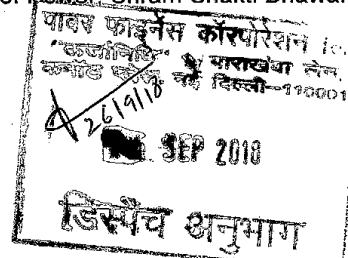 Shram Shakti Bhawan
पावर फाइनेंस कॉरपोरेशन लि.
"ऊर्जानिधि"
बाराखंबा लेन,
कनॉट प्लेस नई दिल्ली-110001
26/9/18
SEP 2018
डिस्पैच अनुभाग